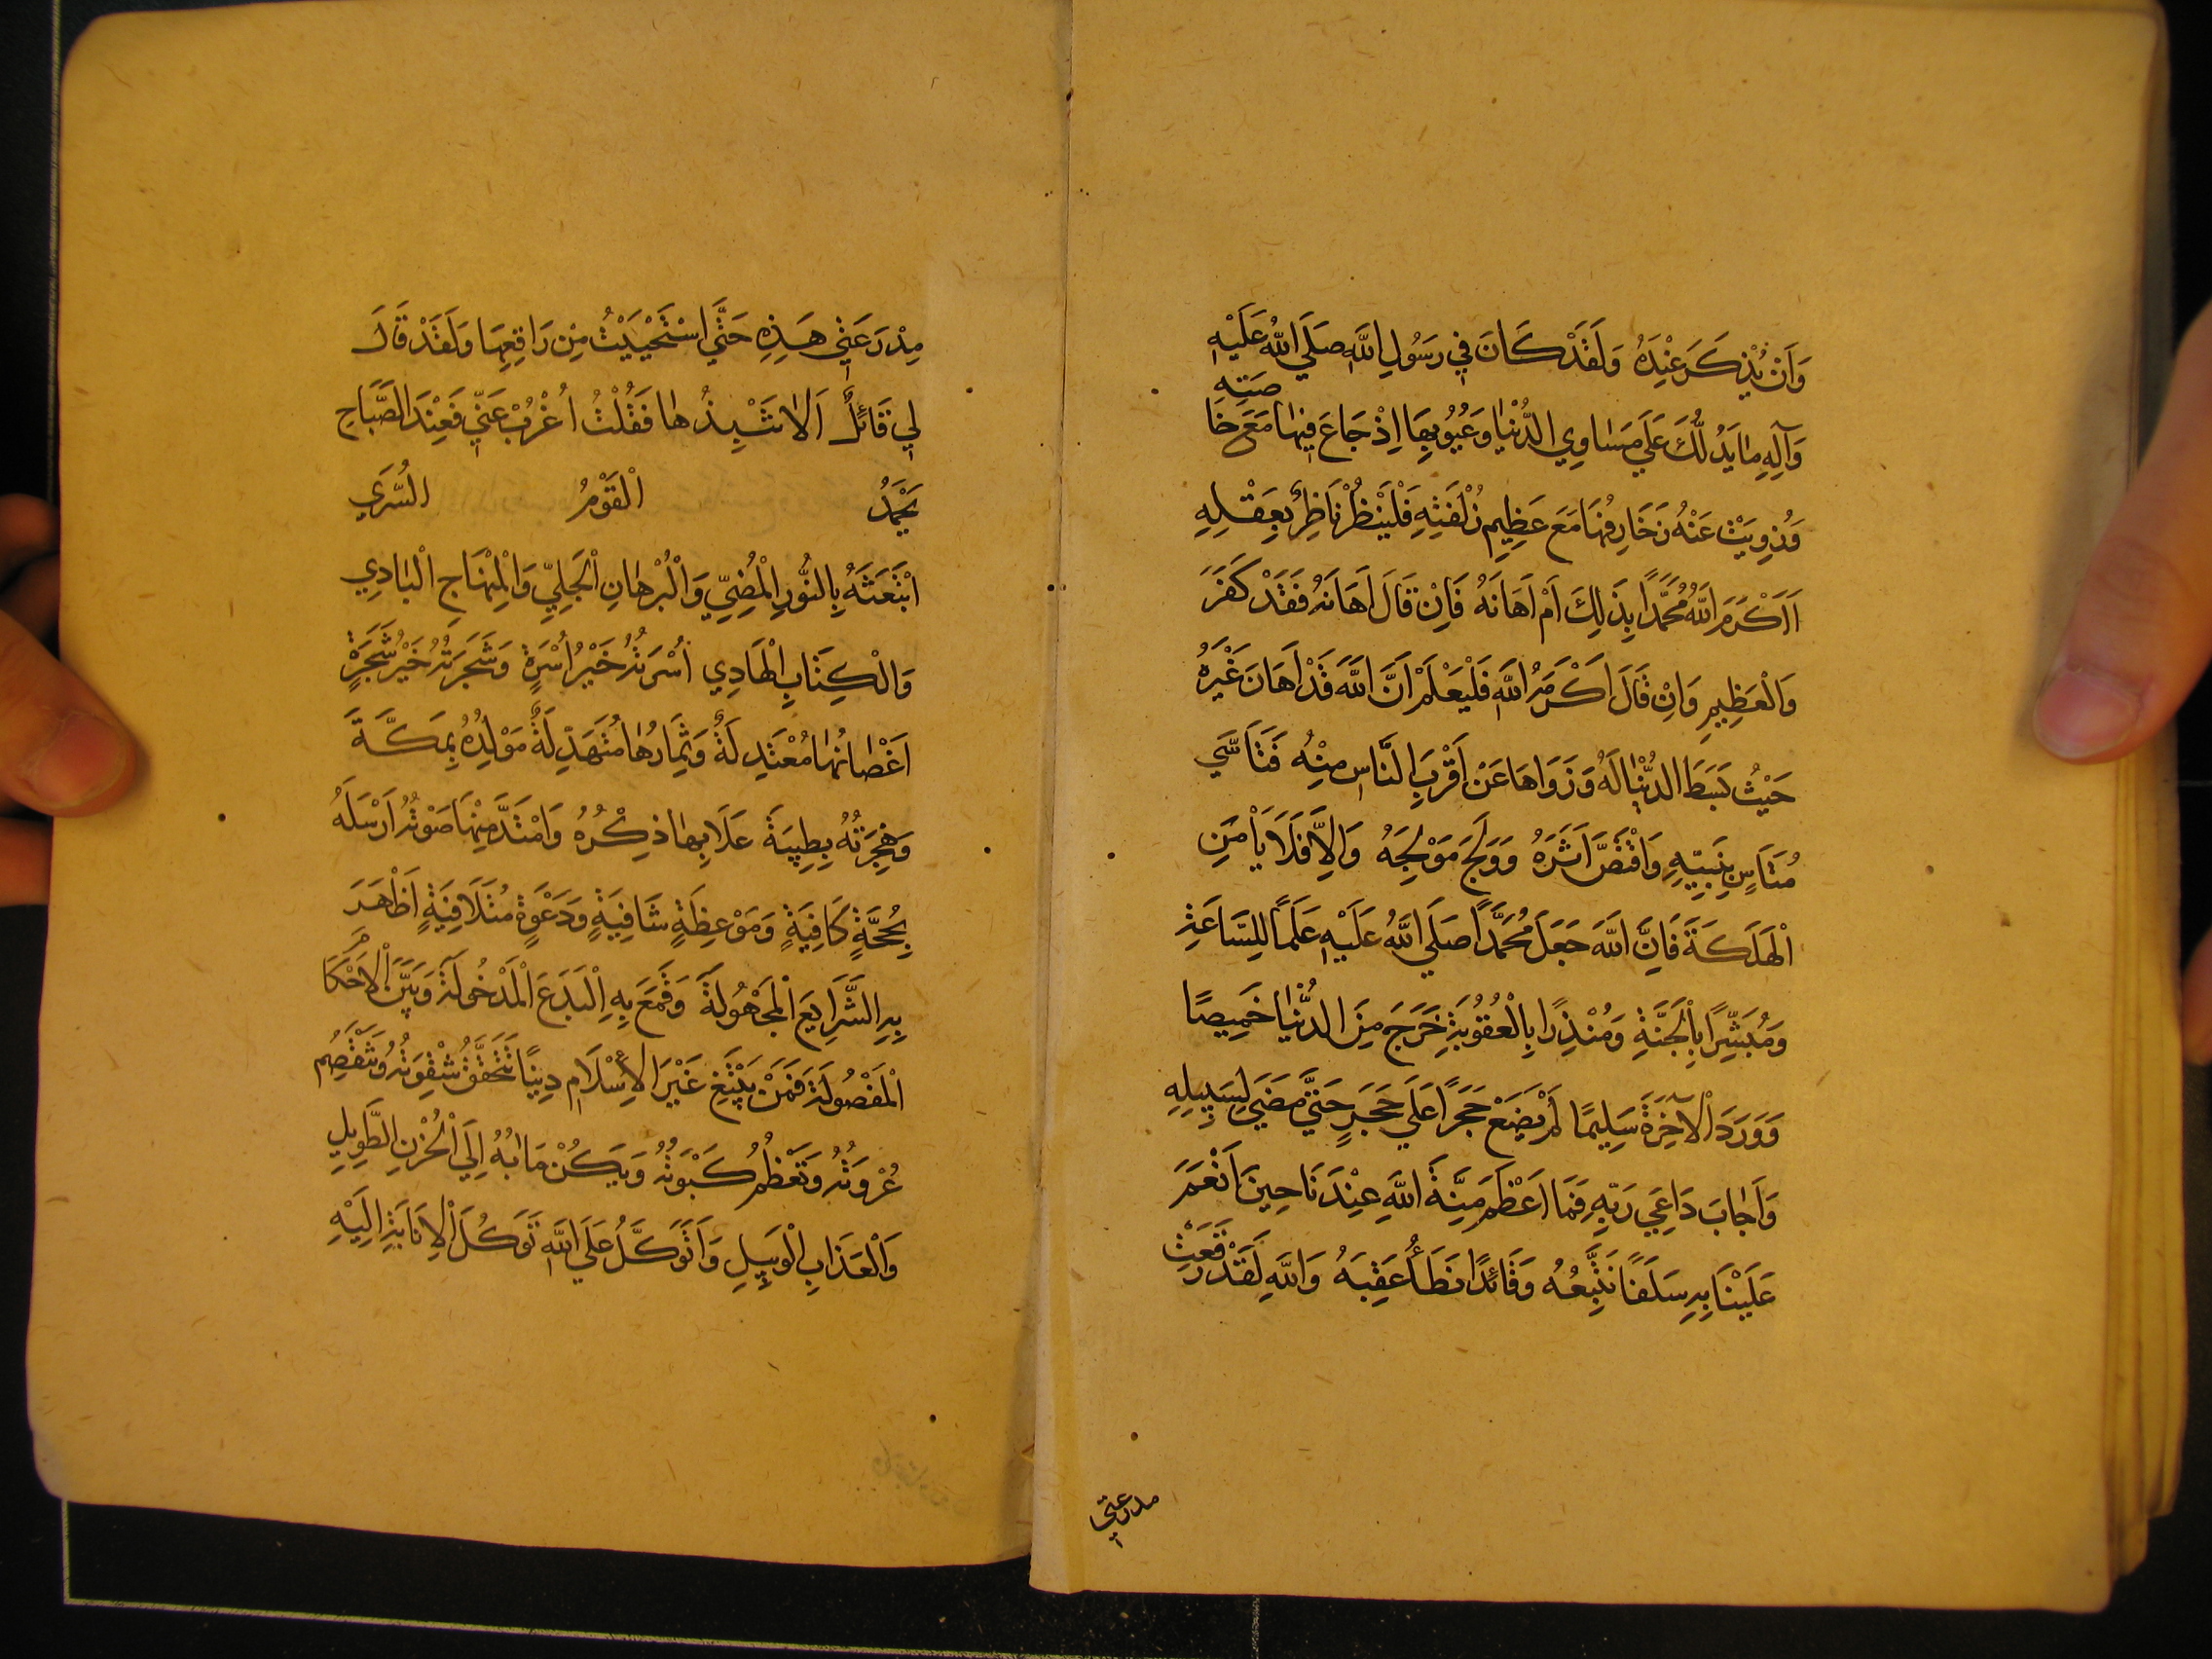 وَاَنْ يُذْكَرَ عِنْدَهُ وَلَقَدْ كَانَ فِي رَسُولِ اللّٰهِ صَلَّي اللّٰهُ عَلَيْهِ
وَآلِهِ مٰا يَدُلُّكَ عَلَي مَسٰاوِي الدُّنْيٰا وَعُيُوبِهَا اِذْ جَاعَ فِيهٰا مَعَ خَاصَّتِهِ
وَزُوِيَتْ عَنْهُ زَخَارِفُهَا مَعَ عَظِيمِ زُلْفَتِهِ فَلْيَنْظُرْ نَاظِرٌ بِعَقْلِهِ
اَاَكْرَمَ اللّٰهُ مُحَمَّدًا بِذَلِكَ اَمْ اَهَانَهُ فَاِنْ قَالَ اَهَانَهُ فَقَدْ كَفَرَ
وَالْعَظِيمِ وَاِنْ قَالَ اَكْرَمَهُ اللّٰهُ فَلْيَعْلَمْ اَنَّ اللّٰهَ قَدْ اَهَانَ غَيْرَهُ
حَيْثُ بَسَطَ الدُّنْيٰا لَهُ وَزَوَاهَا عَنْ اَقْرَبِ النَّاسِ مِنْهُ فَتَاَسَّي
مُتَاَسٍ بِنَبِيِّهِ وَاقْتَصَّ اَثَرَهُ وَوَلَجَ مَوْلِجَهُ وَاِلاَّ فَلَا يَأْمَنِ
الْهَلَكَةَ فَاِنَّ اللّٰهَ جَعَلَ مُحَمَّدًا صَلَّي اللّٰهُ عَلَيْهِ عَلَمًا لِلسَّاعَةِ
وَمُبَشِّرًا بِالْجَنَّةِ وَمُنْذِرًا بِالْعُقُوبَةِ خَرَجَ مِنَ الدُّنْيٰا خَمِيصًا
وَوَرَدَ الْآخِرَةَ سَلِيمًا لَمْ يَضَعْ حَجَرًا عَلَي حَجَرٍ حَتَّي مَضَي لِسَبِيلِهِ
وَاَجٰابَ دَاعِيَ رَبِّهِ فَمَا اَعْظَمَ مِنَّةَ اللّٰهِ عِنْدَنَا حِينَ اَنْعَمَ
عَلَيْنَا بِهِ سَلَفًا نَتَّبِعُهُ وَقَائِدًا نَطَأُ عَقِبَهُ وَاللّٰهِ لَقَدْ رَقَعْتُ
مدرعتي
مِدْرَعَتِي هَذِهِ حَتَّي اسْتَحْيَيْتُ مِنْ رَاقِعِهَا وَلَقَدْ قَالَ
لِي قَائِلٌ اَلاٰ تَنْبِذُهٰا فَقُلْتُ اُغْرُبْ عَنِّي فَعِنْدَ الصَّبَاحِ
يَحْمَدُ الْقَوْمُ السُّرَي
ابْتَعَثَهُ بِالنُّورِ الْمُضِيِّ وَالْبُرْهٰانِ الْجَلِيِّ وَالْمِنْهٰاجِ الْبٰادِي
وَالْكِتٰابِ الْهَادِي اُسْرَتُهُ خَيْرُ اُسْرَةٍ وَشَجَرَتُهُ خَيْرُ شَجَرَةٍ
اَغْصٰانُهٰا مُعْتَدِلَةٌ وَثِمَارُهٰا مُتَهَدِّلَةٌ مَوْلِدُهُ بِمَكَّةَ
وَهِجْرَتُهُ بِطِيبَةَ عَلَا بِهٰا ذِكْرُهُ وَامْتَدَّ مِنْهَا صَوْتُهُ اَرْسَلَهُ
بِحُجَّةٍ كَافِيَةٍ وَمَوْعِظَةٍ شَافِيَةٍ وَدَعْوَةٍ مُتَلَافِيَةٍ اَظْهَرَ
بِهِ الشَّرَايِعَ الْمَجْهُولَةَ وَقَمَعَ بِهِ الْبِدَعَ الْمَدْخُولَةَ وَبَيَّنَ الْاَحْكَامَ
الْمَفْصُولَةَ فَمَنْ يَبْتَغِ غَيْرَ الْاِسْلَامِ دِينًا تَتَحَقَّقْ شِقْوَتُهُ وَتَنْفَصِمْ
عُرْوَتُهُ وَتَعْظُمْ كَبْوَتُهُ وَيَكُنْ مَاٰبُهُ اِلَي الْحُزْنِ الطَّوِيلِ
وَالْعَذَابِ الْوَبِيلِ وَاَتَوَكَّلُ عَلَي اللّٰهِ تَوَكُّلَ الْاِنَابَةِ اِلَيْهِ